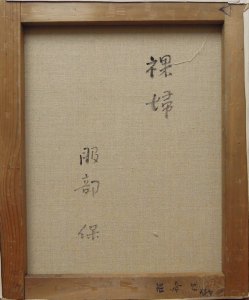 裸婦
服部 保